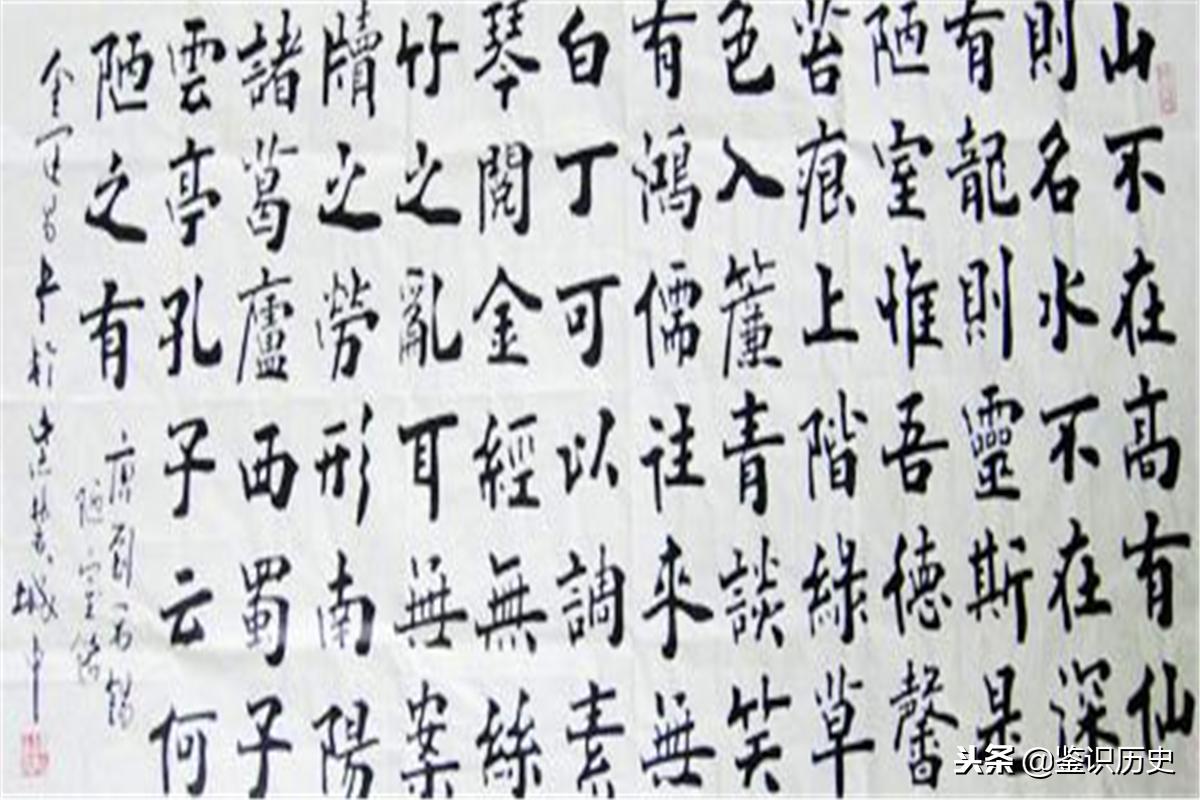 山不在高有仙
則名水不在深
有龍則靈斯是
陋室惟吾德馨
苔痕上階綠草
色入簾青談笑
有鴻儒往來無
白丁可以調素
琴閱金經無絲
竹之亂耳無案
牘之勞形南陽
諸葛廬西蜀子
雲亭孔子云何
陋之有
唐劉禹錫
陋室銘
头条 @鉴识历史